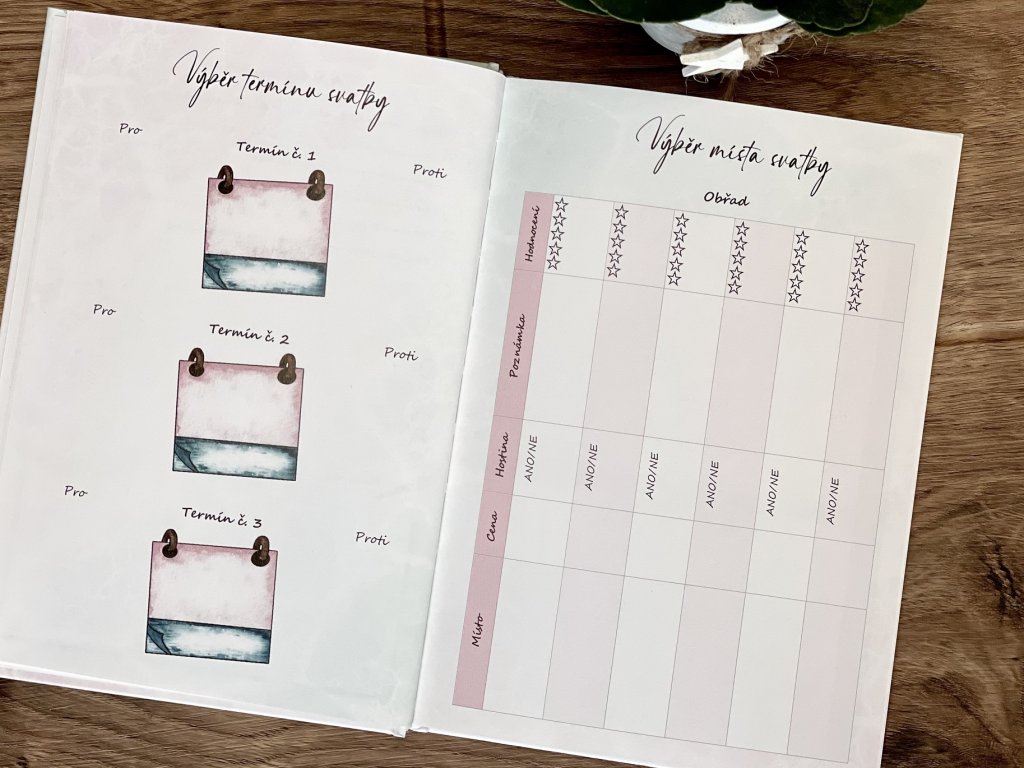 Výběr termínu svatby
Pro
Termín č. 1
Proti
Pro
Termín č. 2
Proti
Pro
Termín č. 3
Proti
Výběr místa svatby
Obřad
Místo
Cena
Hostina
Poznámka
Hodnocení
ANO/NE
ANO/NE
ANO/NE
ANO/NE
ANO/NE
ANO/NE